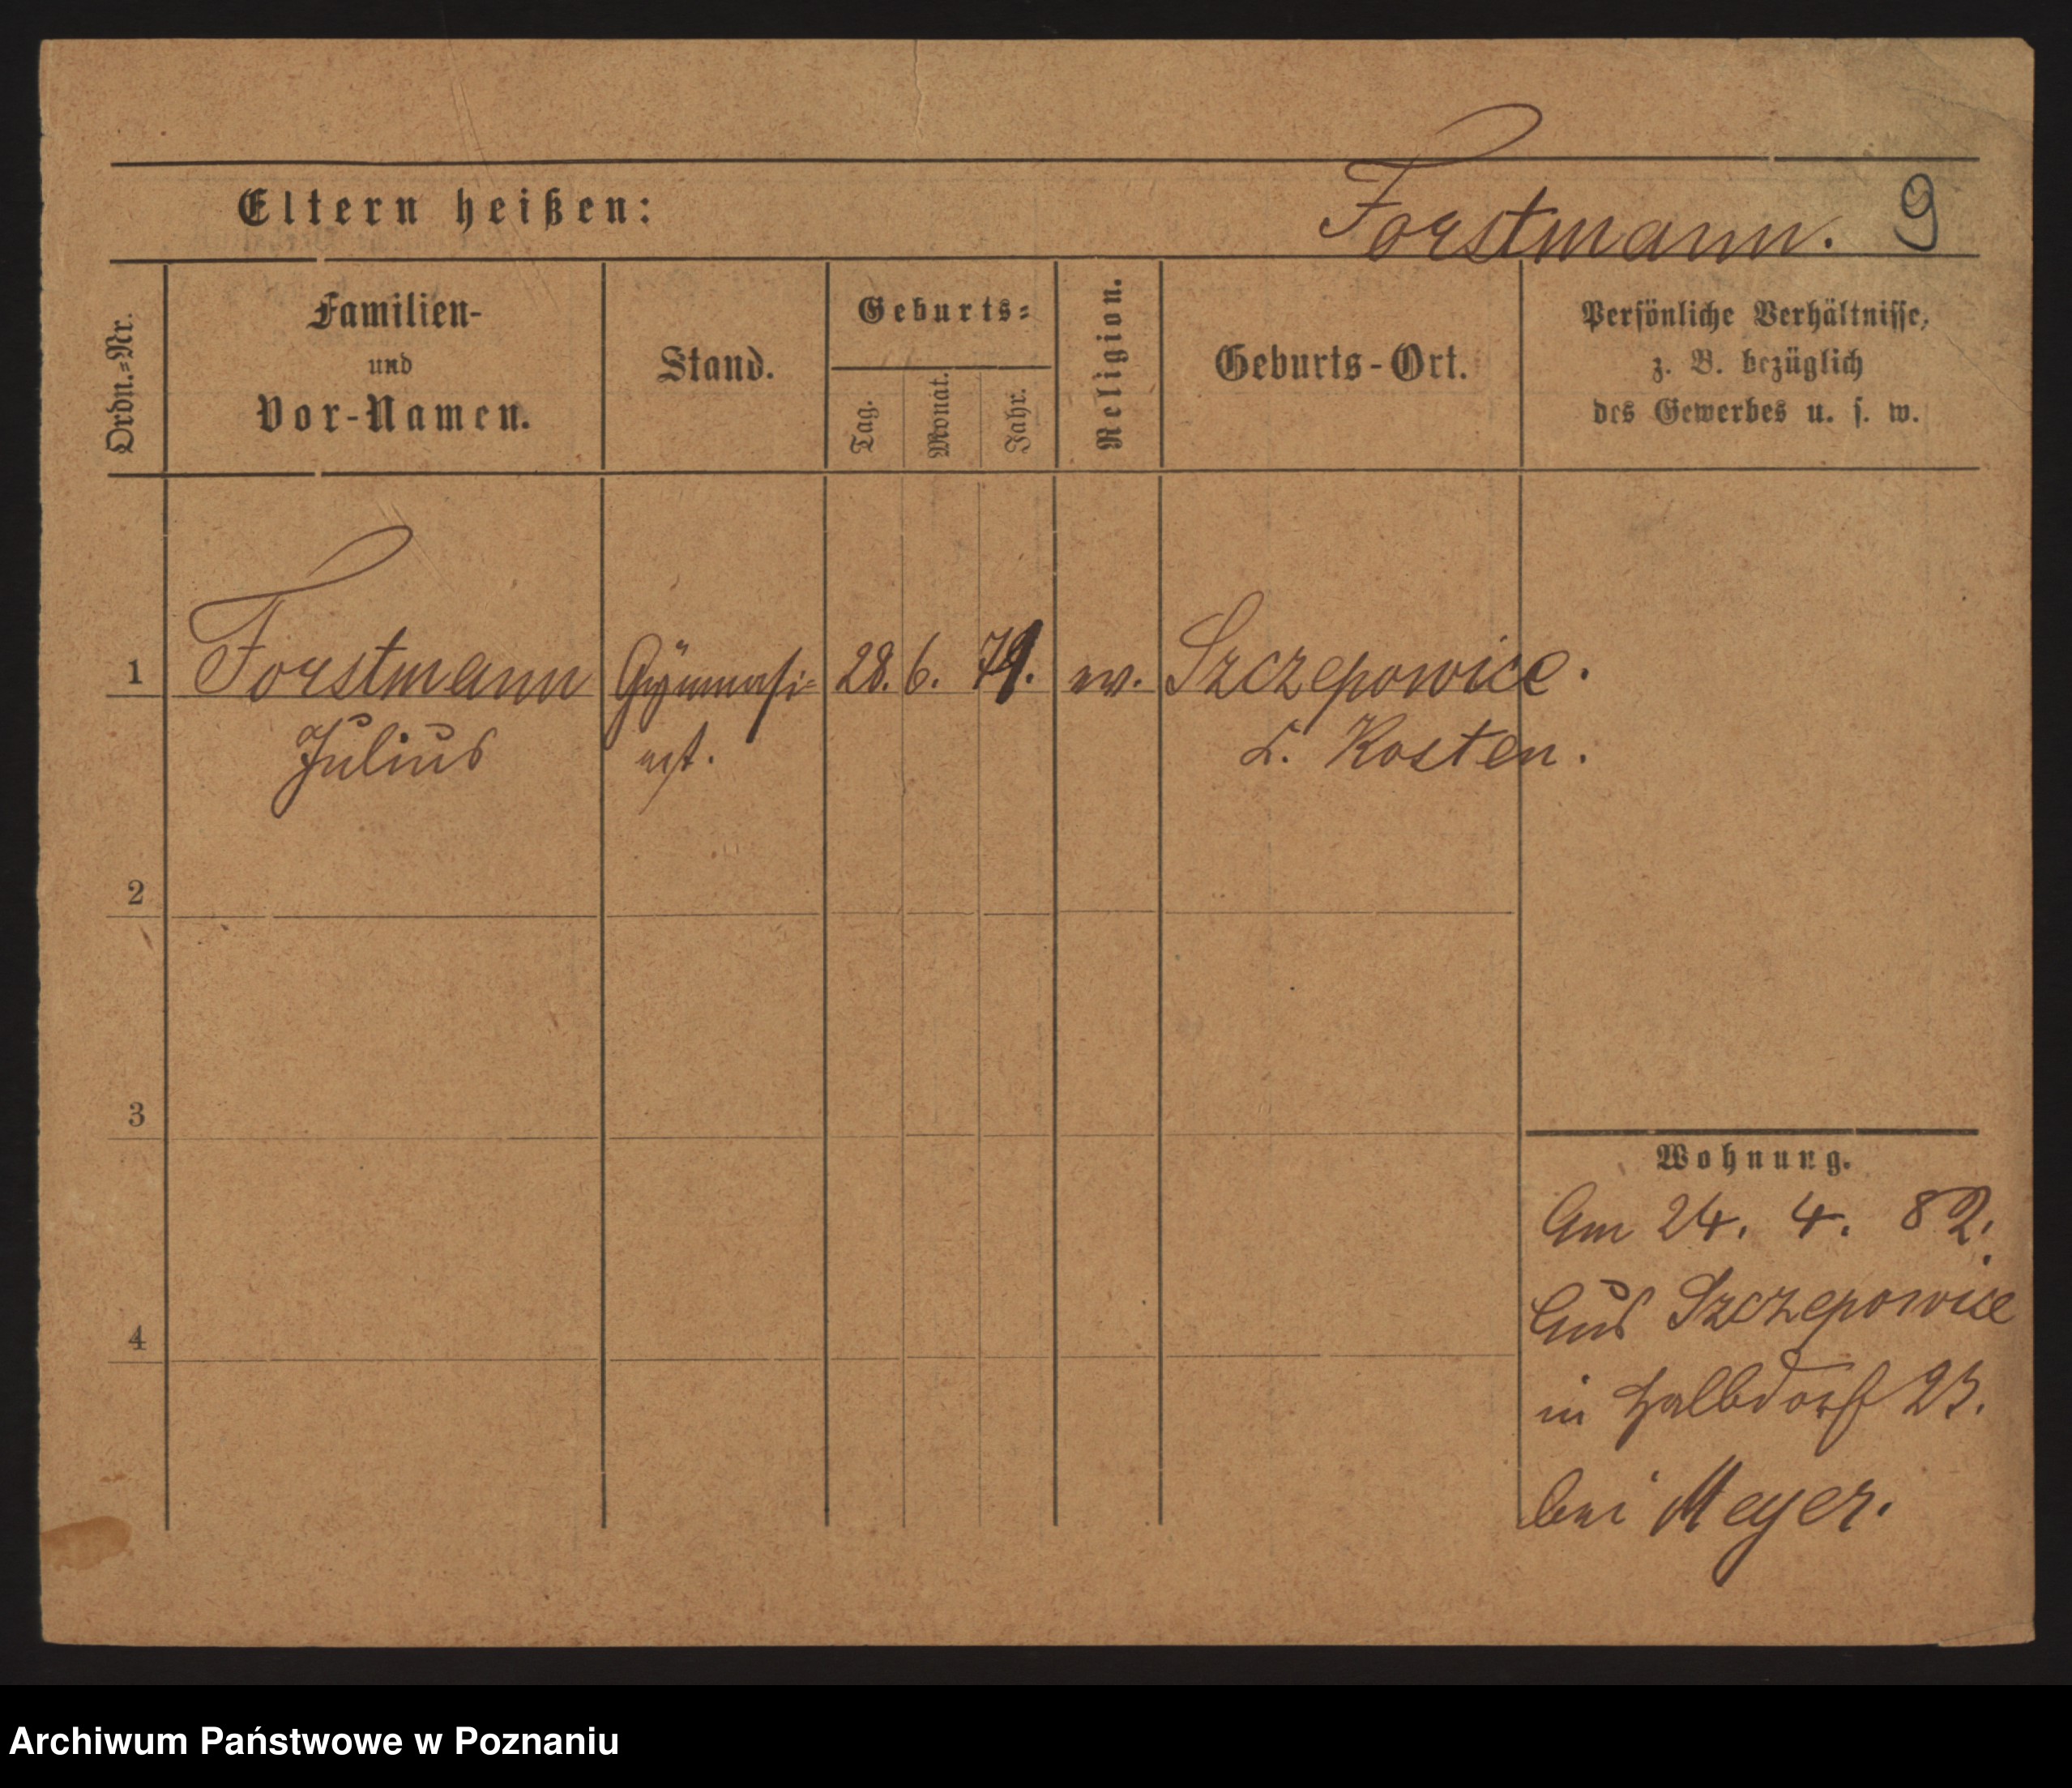 Eltern heißen:
Forstmann. 9
Ordn.=Nr.
Familien-
und
Vor-Namen.
Stand.
Geburts=
Tag.
Monat.
Jahr.
Religion.
Geburts-Ort.
Persönliche Verhältnisse,
z. B. bezüglich
des Gewerbes u. s. w.
1 Forstmann Gymnasi= 28. 6. ev. Szczepowice.
Julius ast. Kosten.
2
3
Wohnung.
Am 24. 4. 82.
Aus Szczepowice
4
in Halbdorf 23.
bei Meyer.
Archiwum Państwowe w Poznaniu